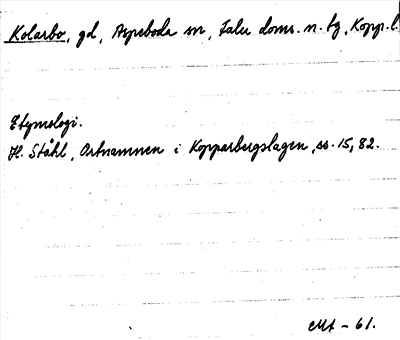 Kolarbo, gd, Aspeboda sn, Falu doms. n. tg, Kopp. l.
Etymologi.
H. Ståhl, Ortnamnen i Kopparbergslagen, ss. 15, 82.
- 61.